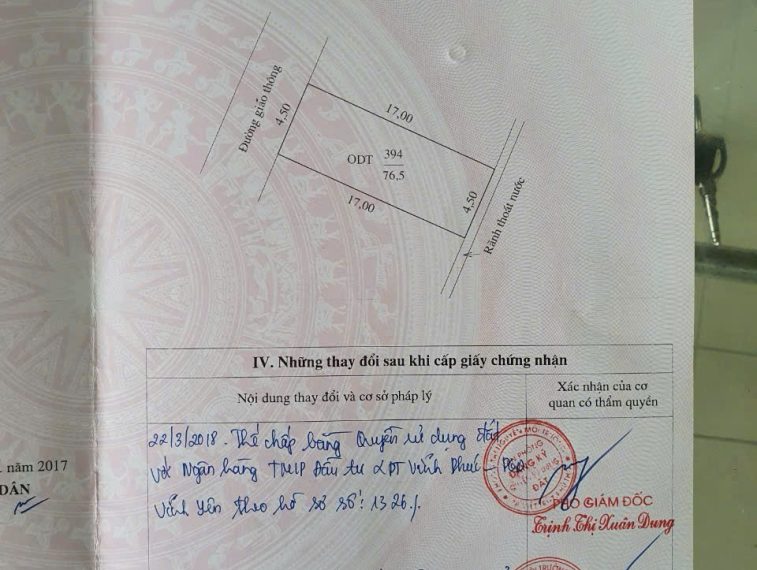 Đường giao thông
4,50
17,00
ODT 394
76,5
17,00
4,50
Rãnh thoát nước
IV. Những thay đổi sau khi cấp giấy chứng nhận
Nội dung thay đổi và cơ sở pháp lý
Xác nhận của cơ
quan có thẩm quyền
22/3/2018. Thế chấp bằng Quyền sử dụng đất
với Ngân hàng TMCP Đầu tư & PT Vĩnh Phúc - PGD
Vĩnh Yên theo hồ sơ số: 1326./.
VĂN PHÒNG
ĐĂNG KÝ
ĐẤT
PHÓ GIÁM ĐỐC
Trịnh Thị Xuân Dung
năm 2017
DÂN